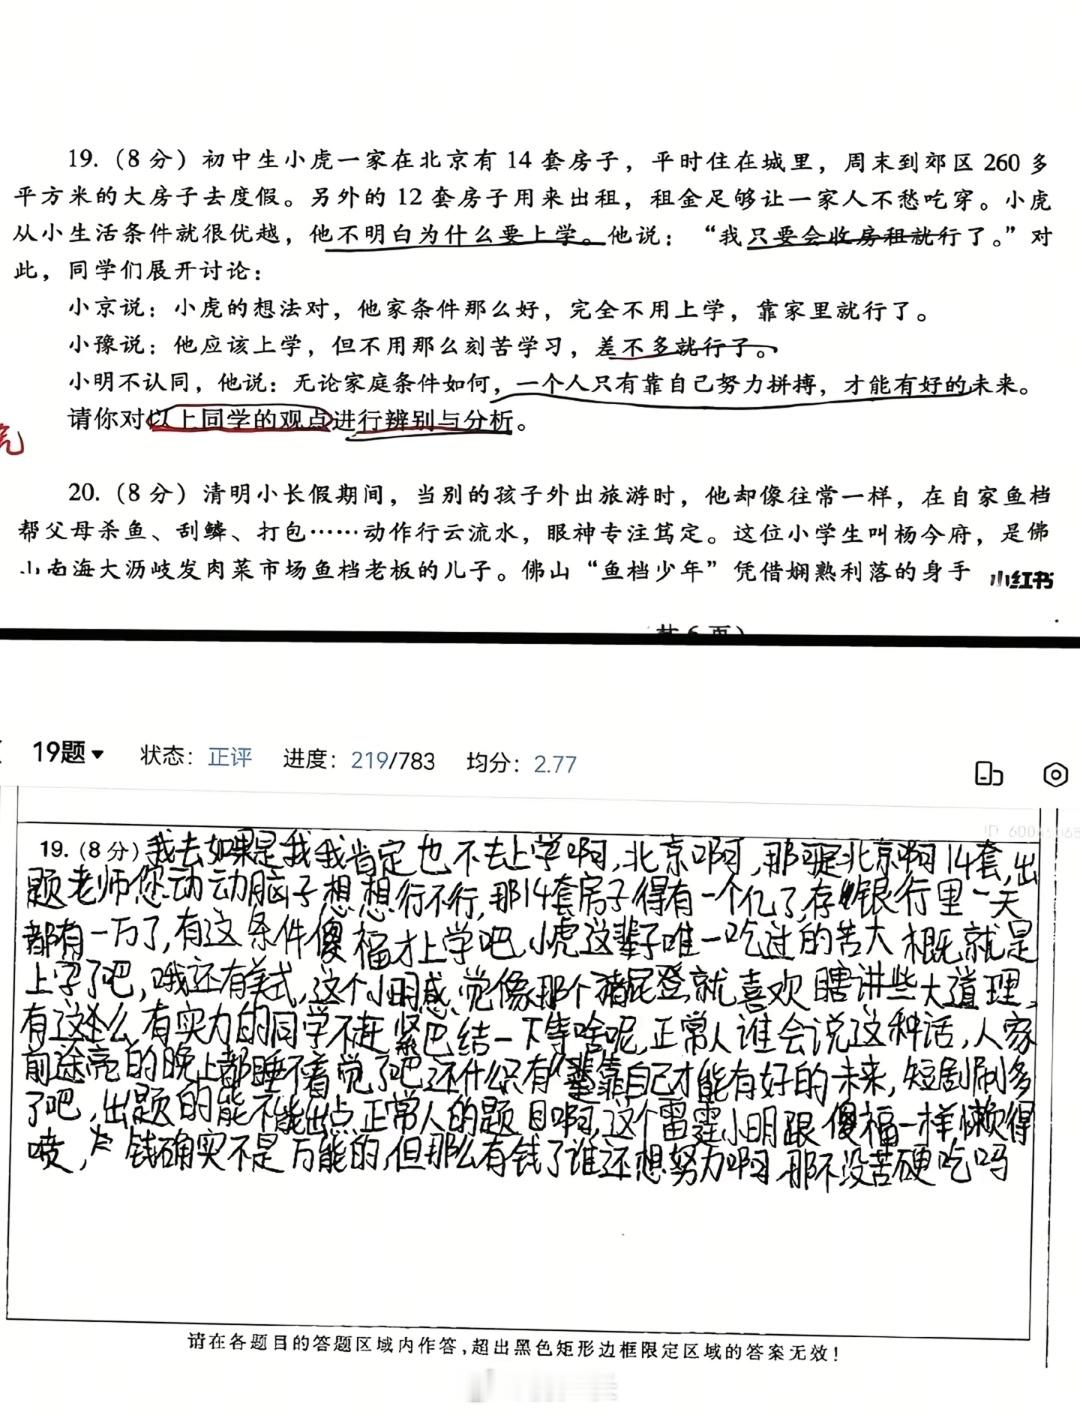 19.（8分）初中生小虎一家在北京有14套房子，平时住在城里，周末到郊区260多
平方米的大房子去度假。另外的12套房子用来出租，租金足够让一家人不愁吃穿。小虎
从小生活条件就很优越，他不明白为什么要上学。他说：“我只要会收房租就行了。”对
此，同学们展开讨论：
小京说：小虎的想法对，他家条件那么好，完全不用上学，靠家里就行了。
小豫说：他应该上学，但不用那么刻苦学习，差不多就行了。
小明不认同，他说：无论家庭条件如何，一个人只有靠自己努力拼搏，才能有好的未来。
请你对以上同学的观点进行辨别与分析。
20.（8分）清明小长假期间，当别的孩子外出旅游时，他却像往常一样，在自家鱼档
帮父母杀鱼、刮鳞、打包……动作行云流水，眼神专注笃定。这位小学生叫杨今府，是佛
山南海大沥岐发肉菜市场鱼档老板的儿子。佛山“鱼档少年”凭借娴熟利落的身手
小红书
共6页）
19题 状态：正评 进度：219/783 均分：2.77
19.（8分）我去如果是我我肯定也不去上学啊，北京啊，那可是北京啊14套，出
题老师你动动脑子想想行不行，那14套房子得有一个亿了，存银行里一天
都有一万了，有这条件傻福才上学吧，小虎这辈子唯一吃过的苦大概就是
上学了吧，哦还有笔试，这个小明感觉像那个猪屁登就喜欢瞎讲些大道理，
有这么有实力的同学不赶紧巴结一下等啥呢，正常人谁会说这种话，人家
前途亮的晚上都睡不着觉了吧还什么只有靠自己才能有好的未来，短剧刷多
了吧，出题的能不能出点正常人的题目啊，这个雷霆小明跟傻福一样懒得
喷，钱确实不是万能的，但那么有钱了谁还想努力啊，那不没苦硬吃吗
请在各题目的答题区域内作答，超出黑色矩形边框限定区域的答案无效！